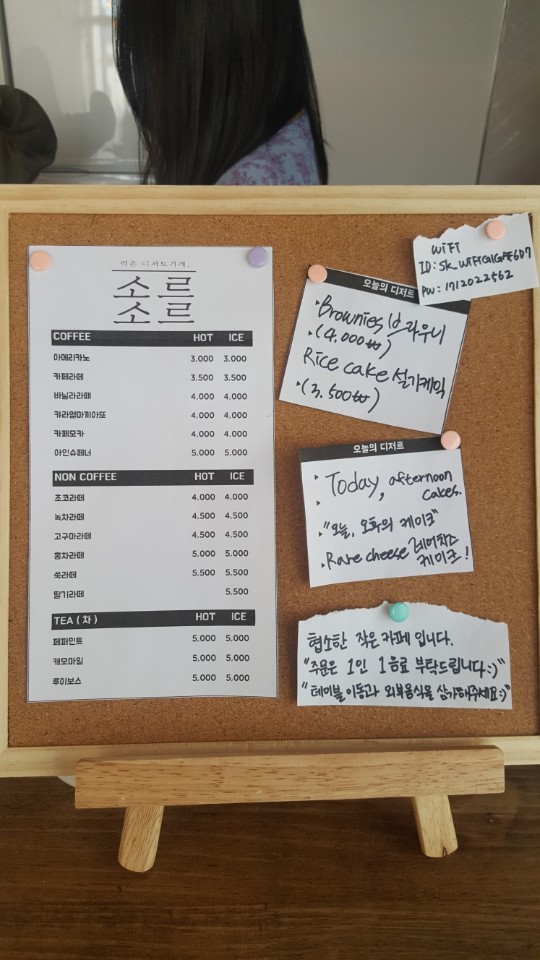 작은 디저트가게,
소르
소르
COFFEE HOT ICE
아메리카노 3.000 3.000
카페라떼 3.500 3.500
바닐라라떼 4.000 4.000
카라멜마끼아또 4.000 4.000
카페모카 4.000 4.000
아인슈페너 5.000 5.000
NON COFFEE HOT ICE
초코라떼 4.000 4.000
녹차라떼 4.500 4.500
고구마라떼 4.500 4.500
홍차라떼 5.000 5.000
쑥라떼 5.500 5.500
딸기라떼 5.500
TEA ( 차 ) HOT ICE
페퍼민트 5.000 5.000
캐모마일 5.000 5.000
루이보스 5.000 5.000
WiFi
ID: SK_WiFiGIGAF6D7
PW: 1712022562
오늘의 디저트
·Brownies 브라우니
·(4,000₩)
Rice cake 설기케익
·(3,500₩)
오늘의 디저트
· Today, afternoon
cakes.
·"오늘, 오후의 케이크"
·Rare cheese 레어치즈
케이크!
협소한 작은 카페 입니다.
"주문은 1인 1음료 부탁드립니다:)"
"테이블 이동과 외부음식을 삼가해주세요:)"